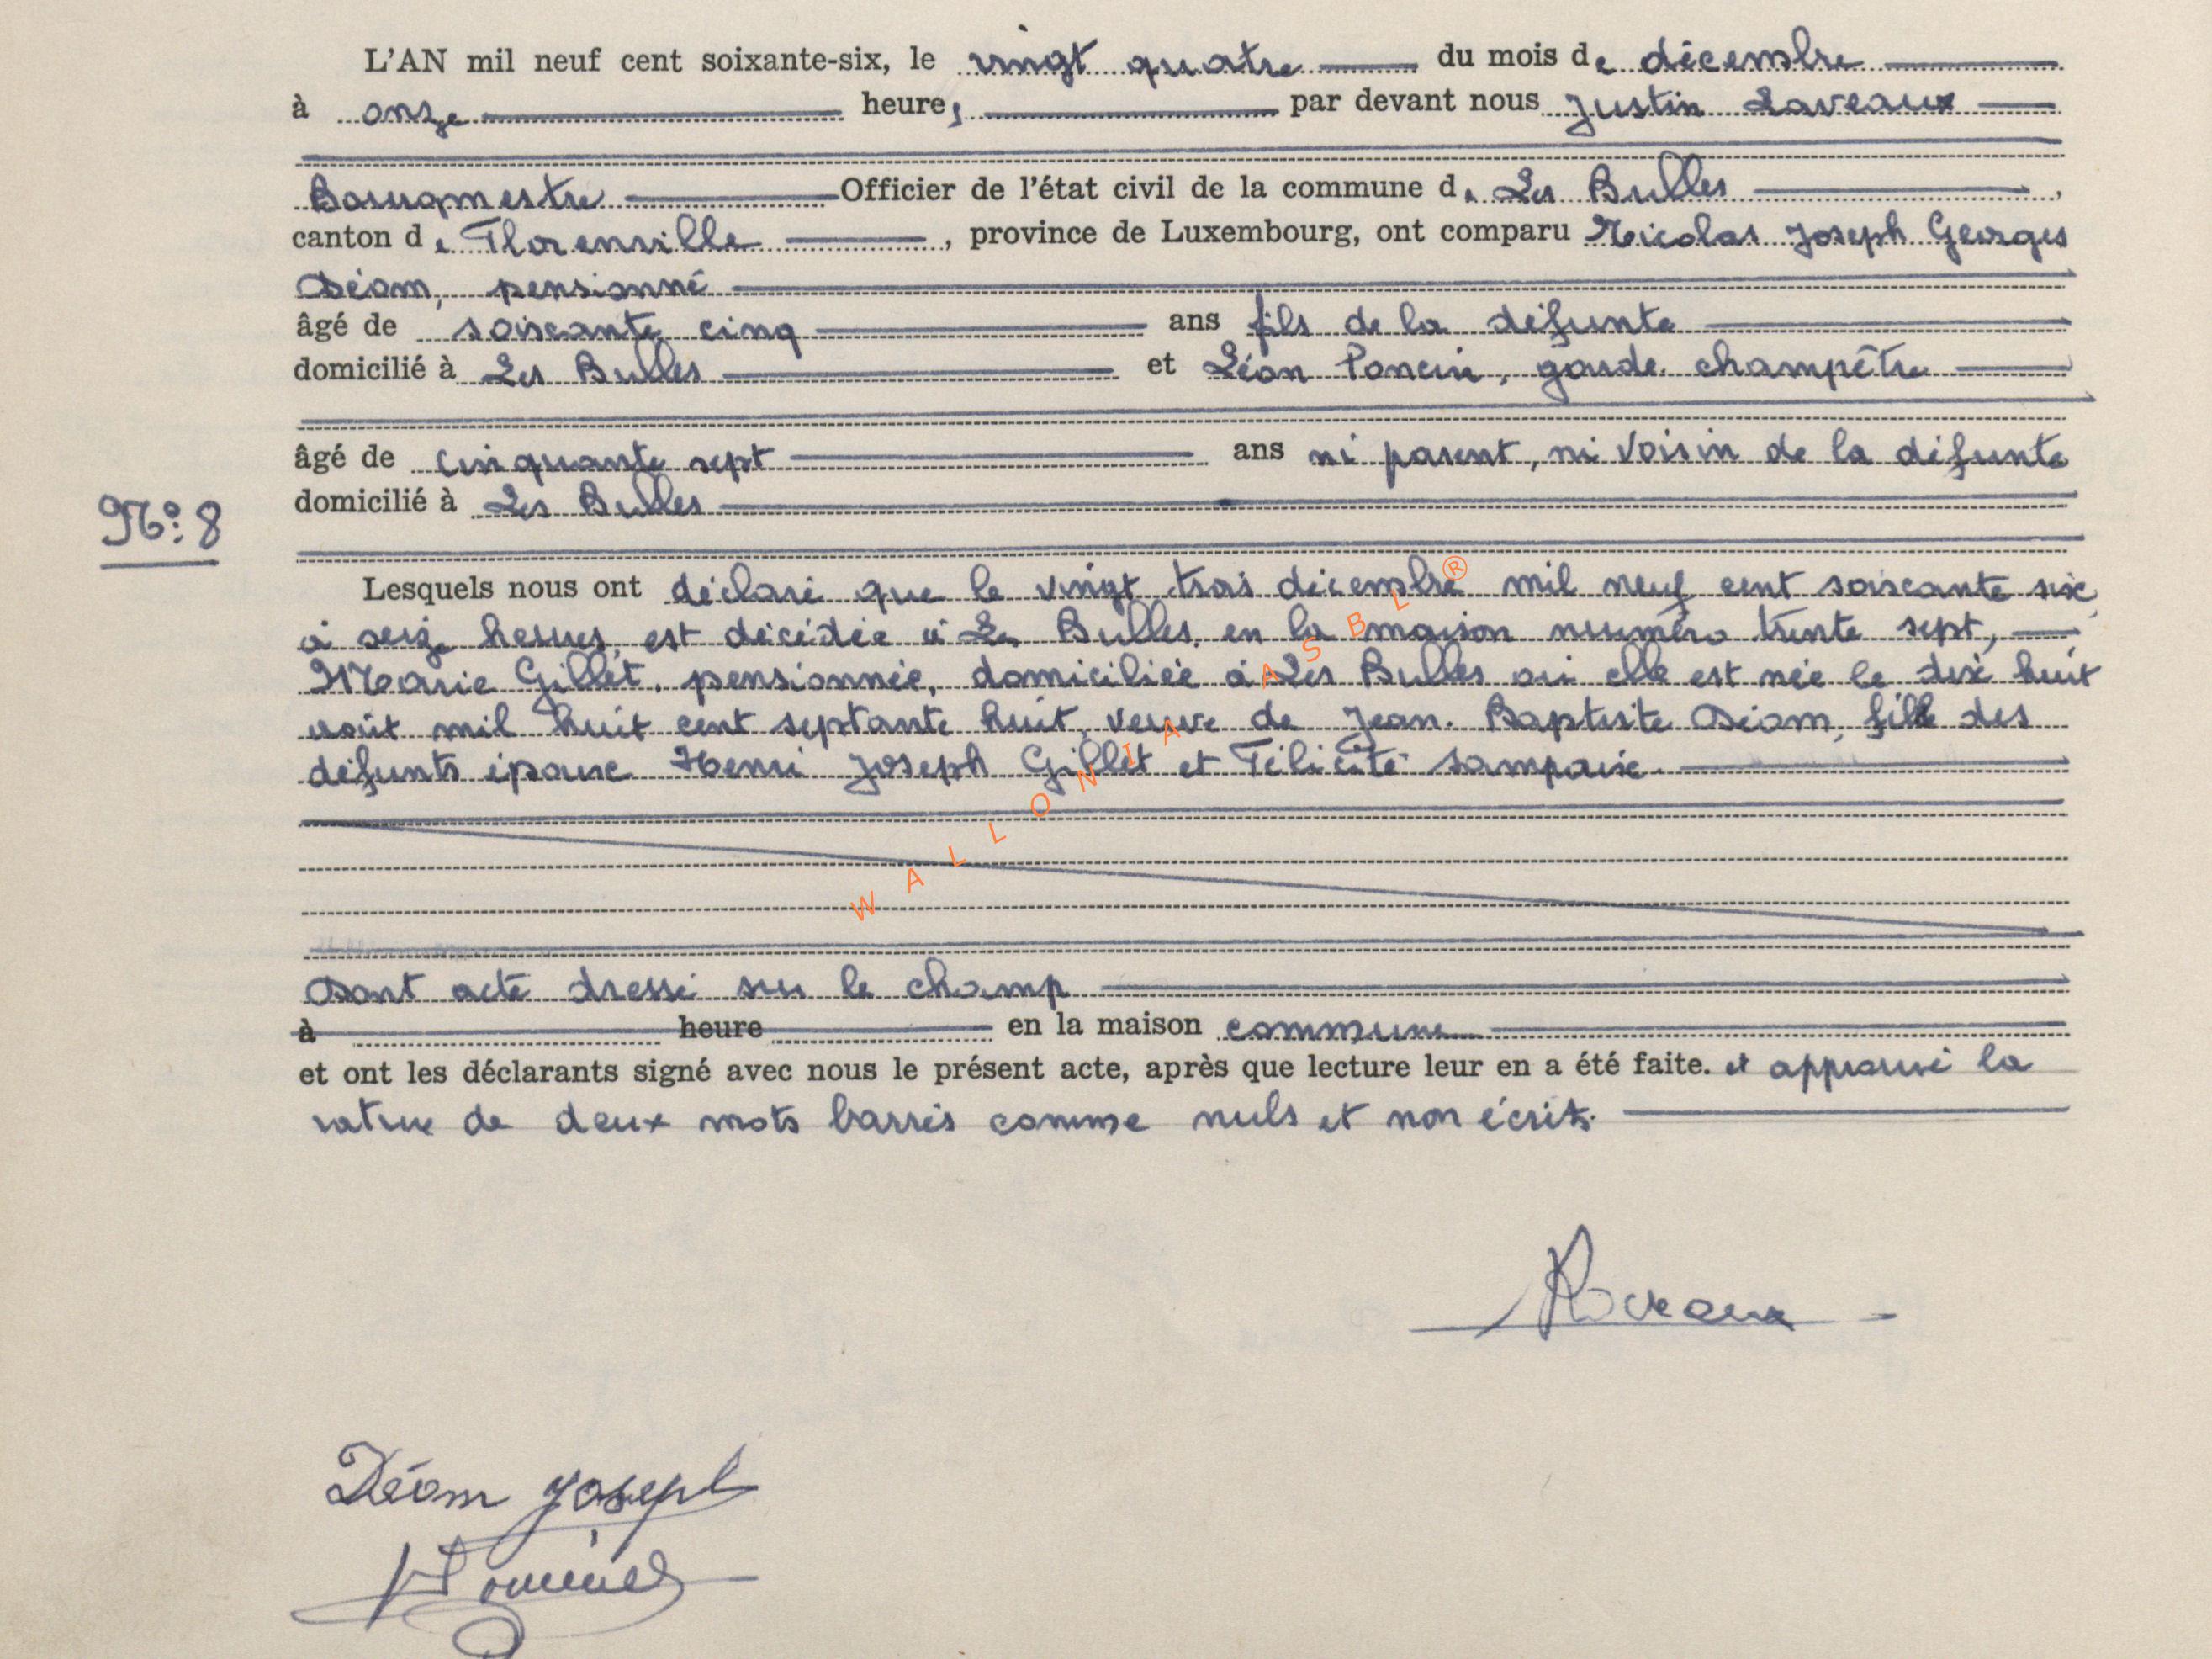 L'AN mil neuf cent soixante-six, le vingt quatre du mois de décembre
à onze heures par devant nous Justin Laveaux
Bourgmestre Officier de l'état civil de la commune de Les Bulles,
canton de Florenville, province de Luxembourg, ont comparu Nicolas Joseph Georges
Déom, pensionné
âgé de soixante cinq ans fils de la défunte
domicilié à Les Bulles et Léon Poncin, garde champêtre
âgé de cinquante sept ans ni parent, ni voisin de la défunte
domicilié à Les Bulles
N°: 8
Lesquels nous ont déclaré que le vingt trois décembre mil neuf cent soixante six
à seize heures, est décédée à Les Bulles, en la maison numéro trente sept,
Marie Gillet, pensionnée, domiciliée à Les Bulles où elle est née le dix huit
août mil huit cent septante huit, veuve de Jean-Baptiste Déom, fille des
défunts époux Henri Joseph Gillet et Félicité Sampaix.
WALLONIA ASBL ®
Dont acte dressé sur le champ
à heure en la maison commune
et ont les déclarants signé avec nous le présent acte, après que lecture leur en a été faite. et approuvé la
rature de deux mots barrés comme nuls et non écrits.
Laveaux
Déom Joseph